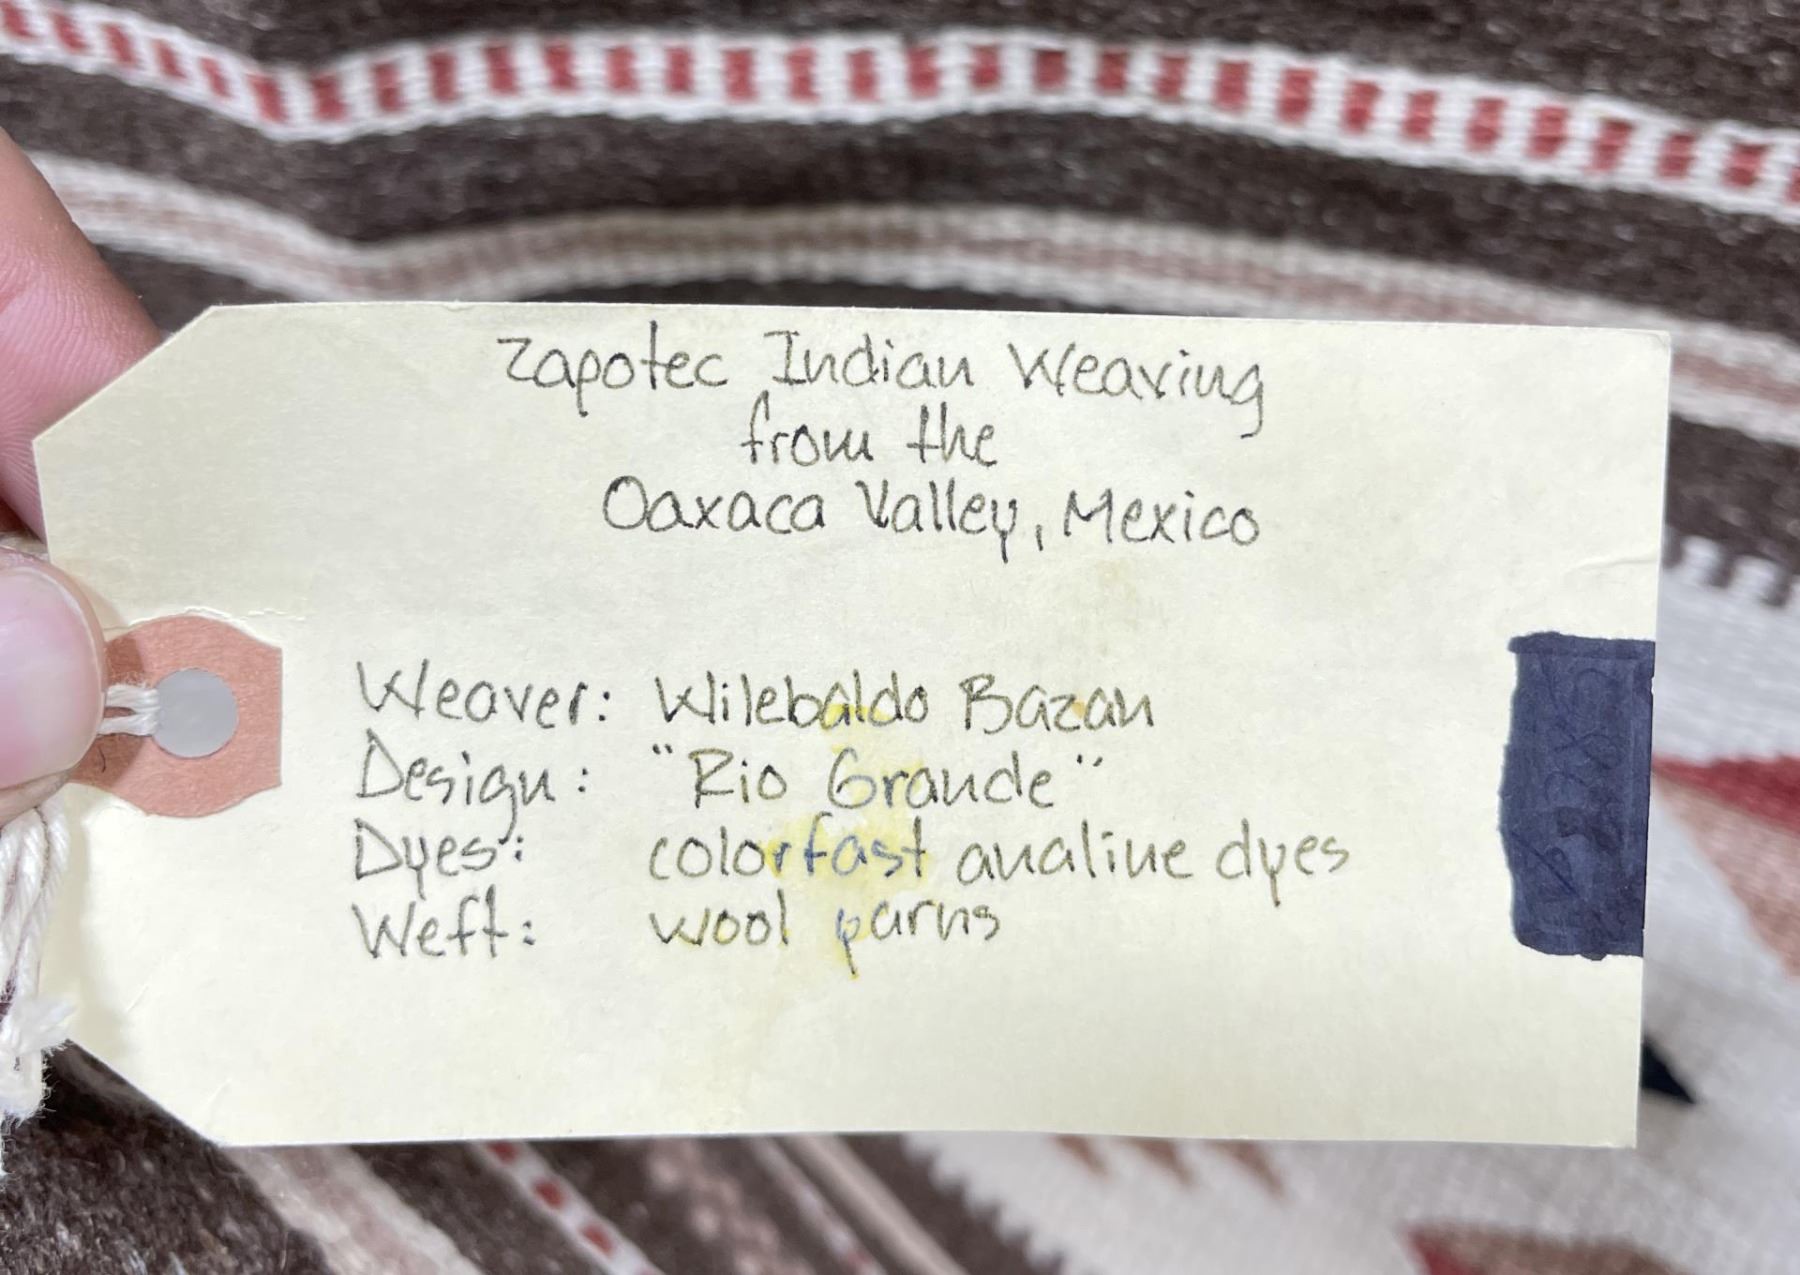 Zapotec Indian Weaving
from the
Oaxaca Valley, Mexico
Weaver: Wilebaldo Bazan
Design: "Rio Grande"
Dyes: colorfast analine dyes
Weft: wool yarns